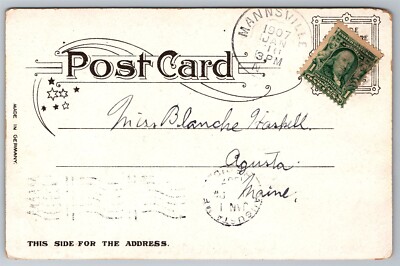 MANNSVILLE
1907
JUN
3 PM
Post Card
MADE IN GERMANY.
Miss Blanche Haskell.
Agusta.
Maine.
THIS SIDE FOR THE ADDRESS.